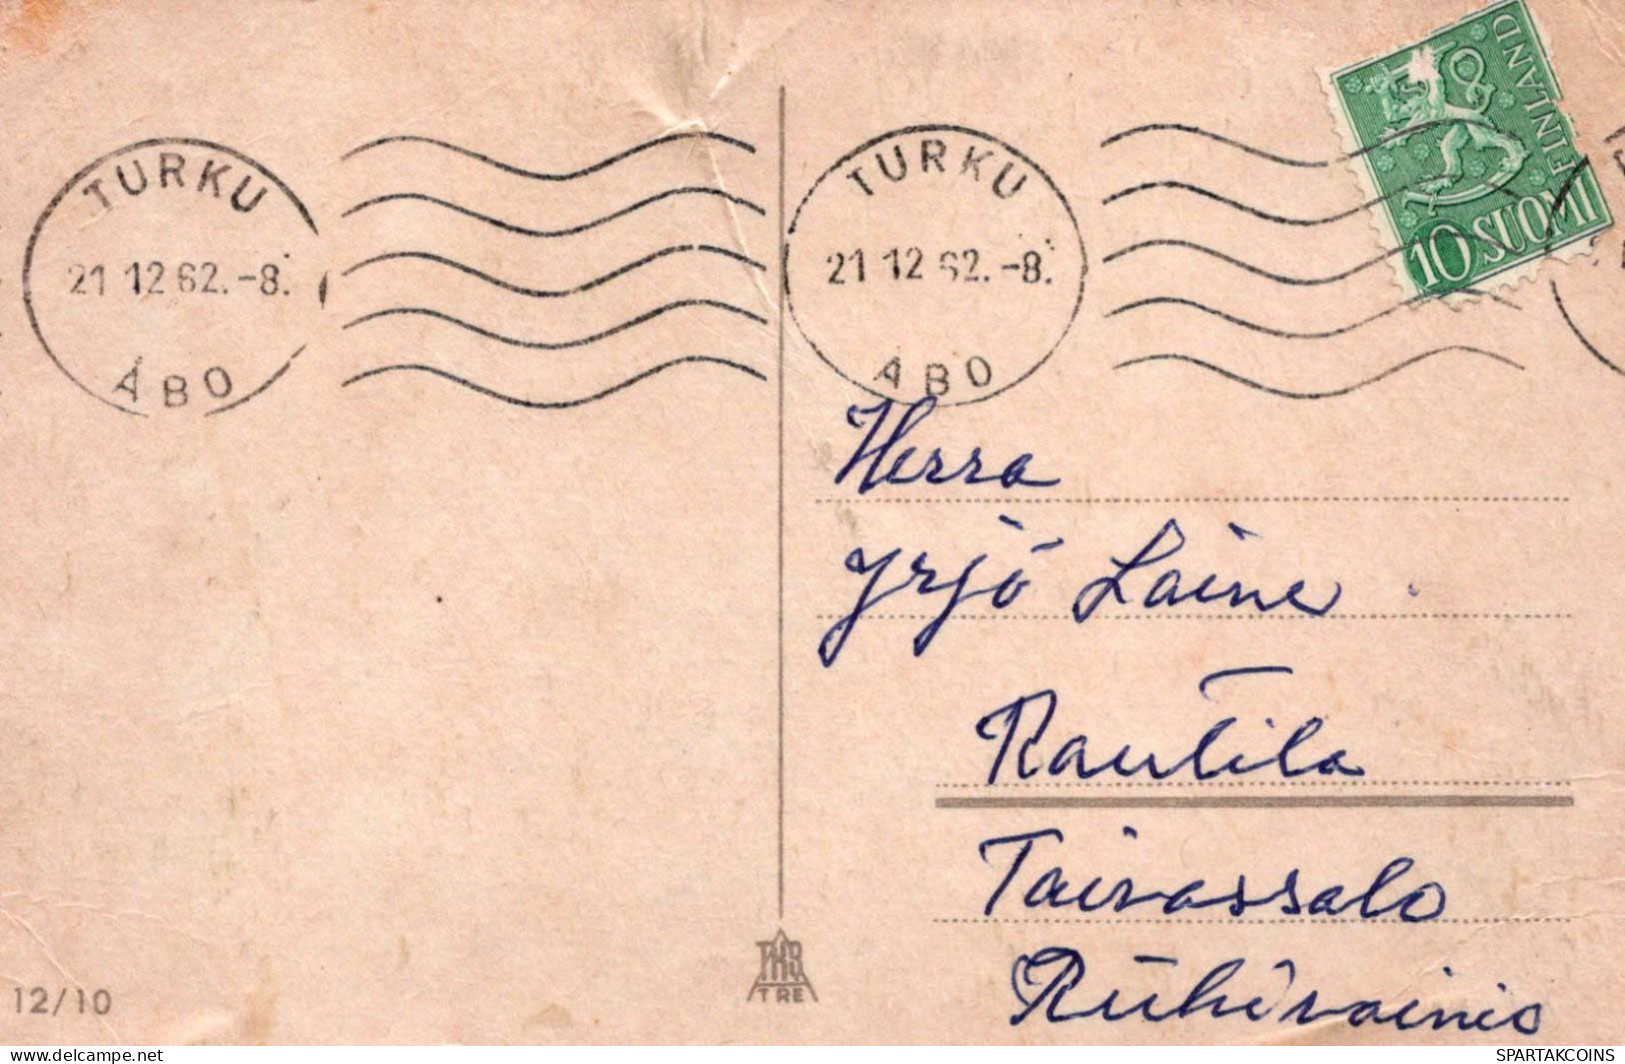 TURKU
21 12 62.-8.
ÅBO
TURKU
21 12 62.-8.
ÅBO
FINLAND
10 SUOMI
Herra
Yrjö Laine
Rautila
Taivassalo
Riihivainio
TKB
TRE
12/10
www.delcampe.net
SPARTAKCOINS